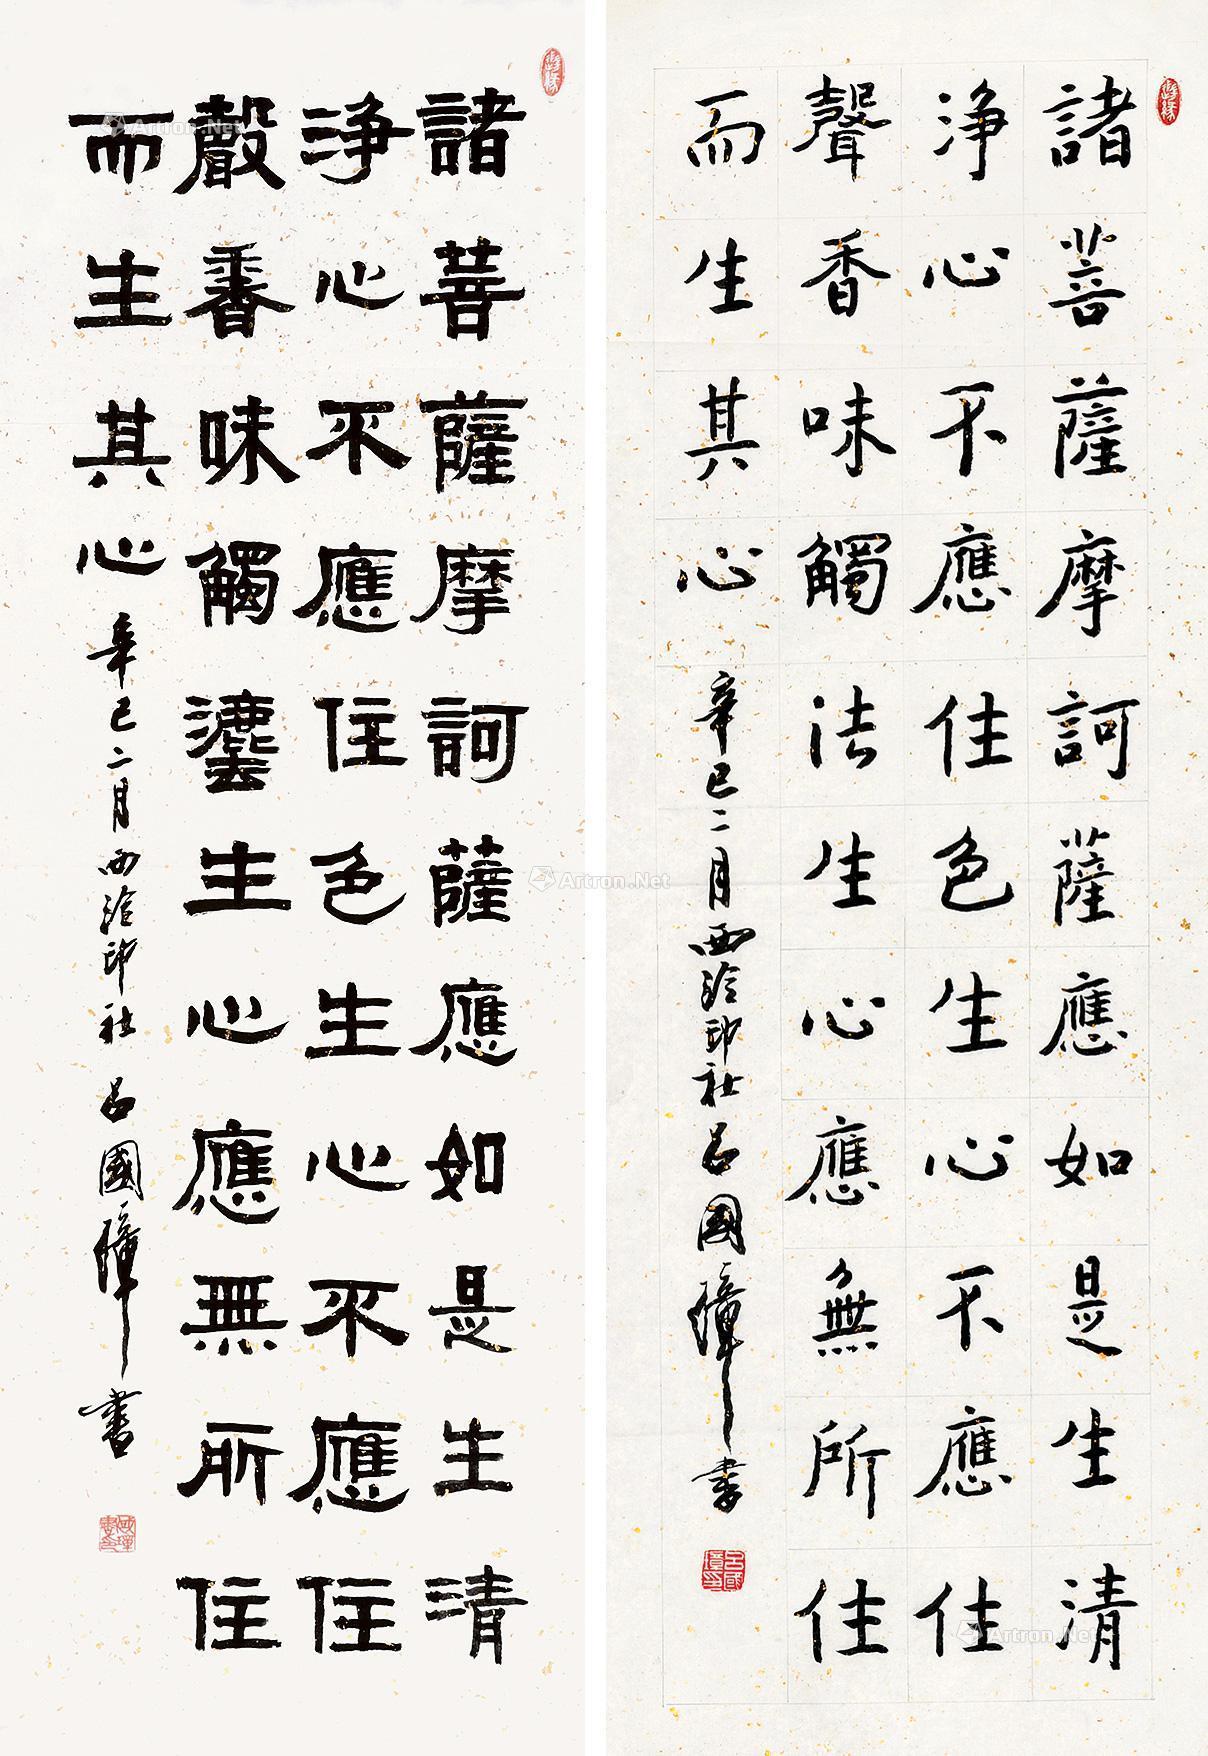 諸菩薩摩訶薩應如是生清
淨心不應住色生心不應住
聲香味觸法生心應無所住
而生其心 辛巳二月西泠印社呂國璋書
Artron.Net
諸菩薩摩訶薩應如是生清
淨心不應住色生心不應住
聲香味觸灋生心應無所住
而生其心 辛巳二月西泠印社呂國璋書
Artron.Net
Artron.Net